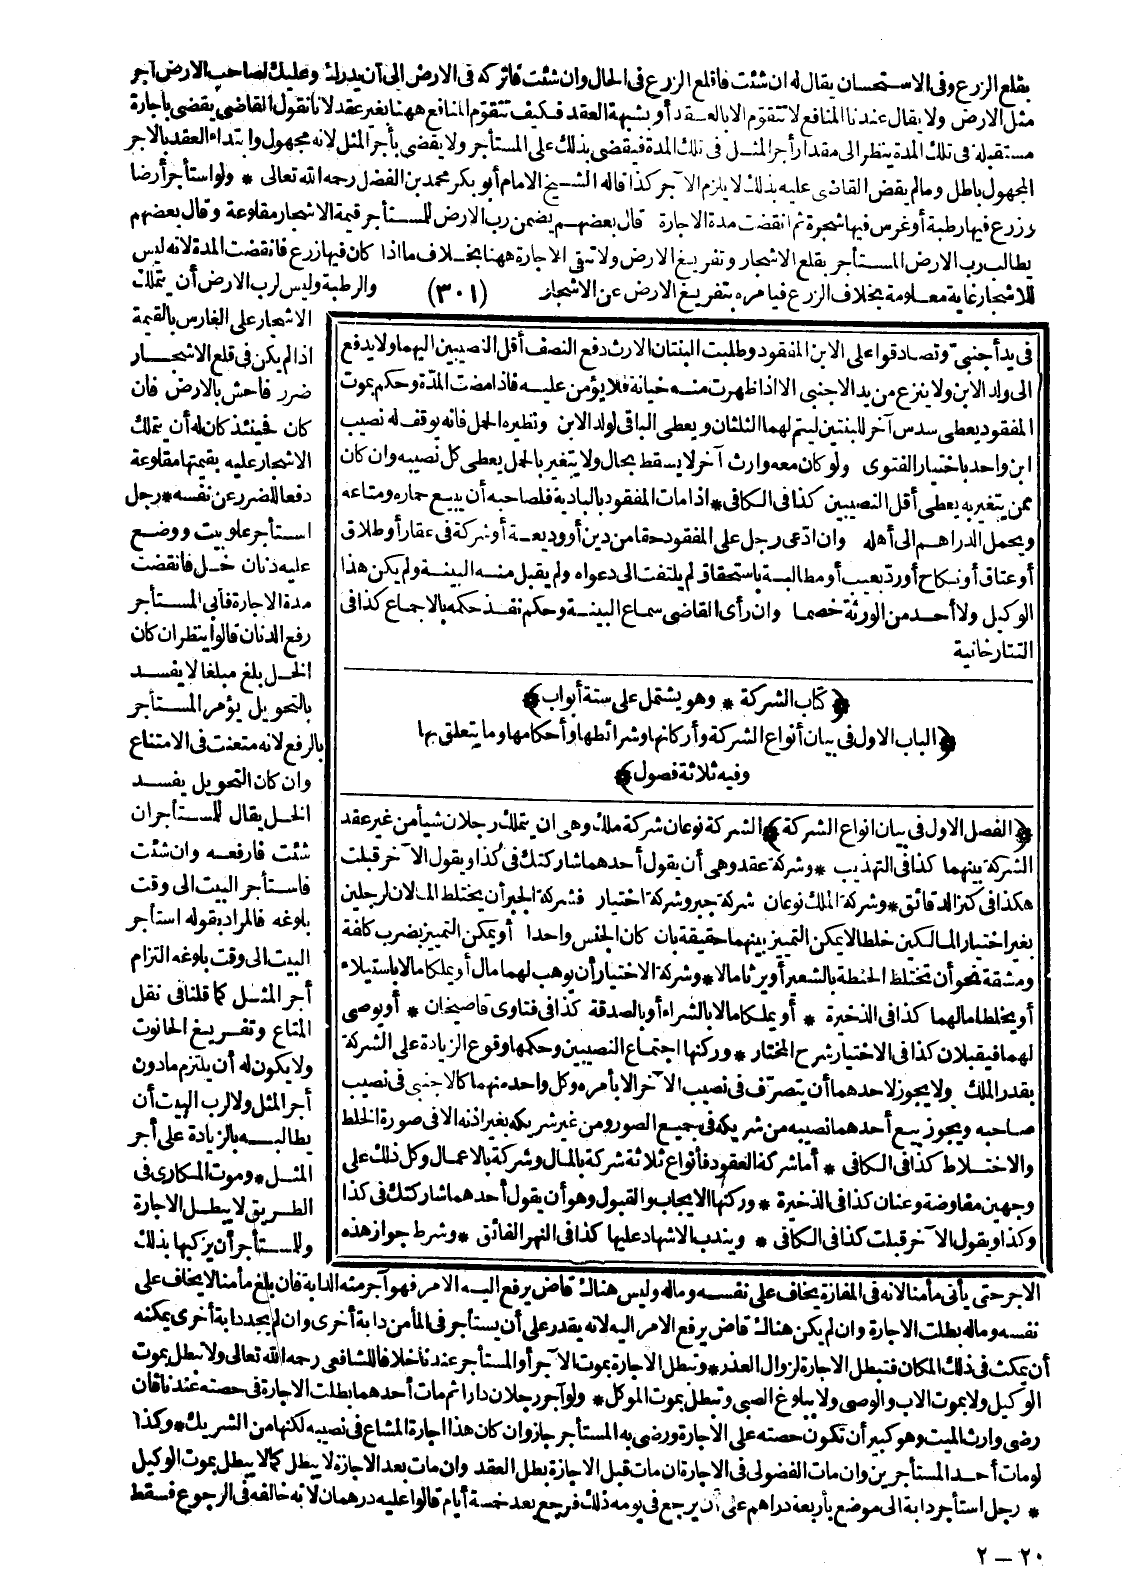 بقلع الزرع وفى الاستحسان يقال له ان شئت فاقلع الزرع فى الحال وان شئت فاتركه فى الارض الى أن يدرك وعليك لصاحب الارض آجر
مثل الارض ولا يقال عندنا المنافع لا تتقوم الا بالعقد أو بشبهة العقد فكيف تتقوم المنافع ههنا بغير عقد لانا نقول القاضى يقضى باجارة
مستقبلة فى تلك المدة ينظر الى مقدار أجر المثل فى تلك المدة فيقضى بذلك على المستأجر ولا يقضى بأجر المثل لانه مجهول وابتداء العقد بالاجر
المجهول باطل ومالم يقض القاضى عليه بذلك لا يلزم الآجر كذا قاله الشيخ الامام أبو بكر محمد بن الفضل رحمه الله تعالى * ولو استأجر أرضا
وزرع فيها رطبة أو غرس فيها شجرة ثم انقضت مدة الاجارة قال بعضهم يضمن رب الارض للمستأجر قيمة الاشجار مقلوعة وقال بعضهم
يطالب رب الارض المستأجر بقلع الاشجار وتفريغ الارض ولا تبقى الاجارة ههنا بخلاف ما اذا كان فيها زرع فانقضت المدة لانه ليس
للاشجار غاية معلومة بخلاف الزرع فيأمره بتفريغ الارض عن الاشجار (٣٠١) والرطبة وليس لرب الارض أن يتملك
الاشجار على الغارس بالقيمة
اذا لم يكن فى قلع الاشجار
ضرر فاحش بالارض فان
كان فحينئذ كان له أن يتملك
الاشجار عليه بقيمتها مقلوعة
دفعا للضرر عن نفسه * رجل
استأجر علو بيت ووضع
عليه دنان خل فانقضت
مدة الاجارة فأبى المستأجر
رفع الدنان قالوا ينظر ان كان
الخل بلغ مبلغا لا يفسد
بالتحويل يؤمر المستأجر
بالرفع لانه متعنت فى الامتناع
وان كان التحويل يفسد
الخل يقال للمستأجر ان
شئت فارفعه وان شئت
فاستأجر البيت الى وقت
بلوغه فالمراد بقوله استأجر
البيت الى وقت بلوغه التزام
أجر المثل كما قلنا فى نقل
المتاع وتفريغ الحانوت
ولا يكون له أن يلتزم مادون
أجر المثل ولا لرب البيت أن
يطالبه بالزيادة على أجر
المثل * وموت المكارى فى
الطريق لا يبطل الاجارة
وللمستأجر أن يركبها بذلك
فى يد أجنبى وتصادقوا على الابن المفقود وطلبت البنتان الارث دفع النصف أقل النصيبين اليهما ولا يدفع
الى ولد الابن ولا ينزع من يد الاجنبى الا اذا ظهرت منه خيانة فلا يؤمن عليه فاذا مضت المدة وحكم بموت
المفقود يعطى سدس آخر للبنتين ليتم لهما الثلثان ويعطى الباقى لولد الابن ونظيره الحمل فانه يوقف له نصيب
ابن واحد باختيار الفتوى ولو كان معه وارث آخر لا يسقط بحال ولا يتغير بالحمل يعطى كل نصيبه وان كان
ممن يتغير به يعطى أقل النصيبين كذا فى الكافى * اذا مات المفقود بالبادية فلصاحبه أن يبيع حماره ومتاعه
ويحمل الدراهم الى أهله وان ادّعى رجل على المفقود حقا من دين أو وديعة أو شركة فى عقار أو طلاق
أو عتاق أو نكاح أو ردّ بعيب أو مطالبة باستحقاق لم يلتفت الى دعواه ولم يقبل منه البينة ولم يكن هذا
الوكيل ولا أحد من الورثة خصما وان رأى القاضى سماع البينة وحكم نفذ حكمه بالاجماع كذا فى
التتارخانية
﴿كتاب الشركة * وهو يشتمل على ستة أبواب﴾
﴿الباب الاول فى بيان أنواع الشركة وأركانها وشرائطها وأحكامها وما يتعلق بها
وفيه ثلاثة فصول﴾
﴿الفصل الاول فى بيان انواع الشركة﴾ الشركة نوعان شركة ملك وهى ان يتملك رجلان شيأ من غير عقد
الشركة بينهما كذا فى التهذيب * وشركة عقد وهى أن يقول أحدهما شاركتك فى كذا ويقول الآخر قبلت
هكذا فى كنز الدقائق * وشركة الملك نوعان شركة جبر وشركة اختيار فشركة الجبر أن يختلط المالان لرجلين
بغير اختيار المالكين خلطا لا يمكن التمييز بينهما حقيقة بان كان الجنس واحدا أو يمكن التمييز بضرب كلفة
ومشقة نحو أن تختلط الحنطة بالشعير أو يرثا مالا * وشركة الاختيار أن يوهب لهما مال أو يملكا مالا باستيلاء
أو يخلطا مالهما كذا فى الذخيرة * أو يملكا مالا بالشراء أو بالصدقة كذا فى فتاوى قاضيخان * أو يوصى
لهما فيقبلان كذا فى الاختيار شرح المختار * وركنها اجتماع النصيبين وحكمها وقوع الزيادة على الشركة
بقدر الملك ولا يجوز لاحدهما أن يتصرّف فى نصيب الآخر الا بأمره وكل واحد منهما كالاجنبى فى نصيب
صاحبه ويجوز بيع أحدهما نصيبه من شريكه فى جميع الصور ومن غير شريكه بغير اذنه الا فى صورة الخلط
والاختلاط كذا فى الكافى * أما شركة العقود فأنواع ثلاثة شركة بالمال وشركة بالاعمال وكل ذلك على
وجهين مفاوضة وعنان كذا فى الذخيرة * وركنها الايجاب والقبول وهو أن يقول أحدهما شاركتك فى كذا
وكذا ويقول الآخر قبلت كذا فى الكافى * ويندب الاشهاد عليها كذا فى النهر الفائق * وشرط جواز هذه
الاجر حتى يأتى مأمنا لانه فى المفازة يخاف على نفسه وماله وليس هناك قاض يرفع اليه الامر فهو آجر منه الدابة فان بلغ مأمنا لا يخاف على
نفسه وماله بطلت الاجارة وان لم يكن هناك قاض يرفع الامر اليه لانه يقدر على أن يستأجر فى المأمن دابة أخرى وان لم يجد دابة أخرى يمكنه
أن يمكث فى ذلك المكان فتبطل الاجارة لزوال العذر * وتبطل الاجارة بموت الآجر أو المستأجر عندنا خلافا للشافعى رحمه الله تعالى ولا تبطل بموت
الوكيل ولا بموت الاب والوصى ولا ببلوغ الصبى وتبطل بموت الموكل * ولو آجر رجلان دارا ثم مات أحدهما بطلت الاجارة فى حصته عندنا فان
رضى وارث الميت وهو كبير أن تكون حصته على الاجارة ورضى به المستأجر جاز وان كان هذا اجارة المشاع فى نصيبه لكنها من الشريك * وكذا
لو مات أحد المستأجرين وان مات الفضولى فى الاجارة ان مات قبل الاجازة بطل العقد وان مات بعد الاجازة لا يبطل كما لا يبطل بموت الوكيل
* رجل استأجر دابة الى موضع بأربعة دراهم على أن يرجع فى يومه ذلك فرجع بعد خمسة أيام قالوا عليه درهمان لانه خالفه فى الرجوع فسقط
٢٠ — ٢